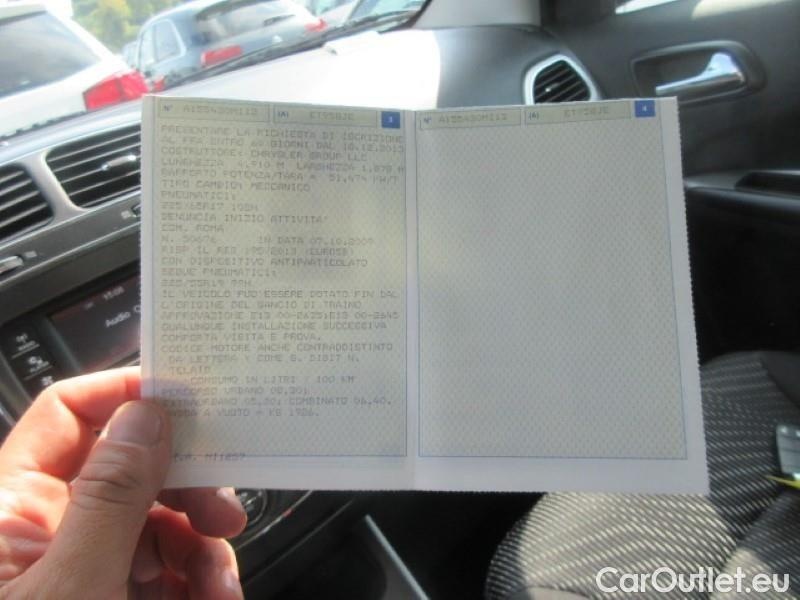 N° A155430MI13 (A) ET958JE 3
PRESENTARE LA RICHIESTA DI ISCRIZIONE
AL PRA ENTRO 60 GIORNI DAL 18.12.2013
COSTRUTTORE: CHRYSLER GROUP LLC
LUNGHEZZA 4,910 M LARGHEZZA 1,878 M
RAPPORTO POTENZA/TARA = 51,474 KW/T
TIPO CAMBIO: MECCANICO
PNEUMATICI:
225/65R17 106H
DENUNCIA INIZIO ATTIVITA'
COM. ROMA
N. 50676 IN DATA 07.10.2009
RISP IL REG 195/2013 (EURO5B)
CON DISPOSITIVO ANTIPARTICOLATO
SEGUE PNEUMATICI:
225/55R19 99H
IL VEICOLO PUO'ESSERE DOTATO FIN DAL
L'ORIGINE DEL GANCIO DI TRAINO
APPROVAZIONE E13 00-2625;E13 00-2645
QUALUNQUE INSTALLAZIONE SUCCESSIVA
COMPORTA VISITA E PROVA.
CODICE MOTORE ANCHE CONTRADDISTINTO
DA LETTERA Y COME 8. DIGIT N.
TELAIO
CONSUMO IN LITRI / 100 KM
PERCORSO URBANO 08,30;
EXTRAURBANO 05,30; COMBINATO 06,40.
MASSA A VUOTO = KG 1986.
N° A155430MI13 (A) ET958JE 4
15:08
Audio
CarOutlet.eu